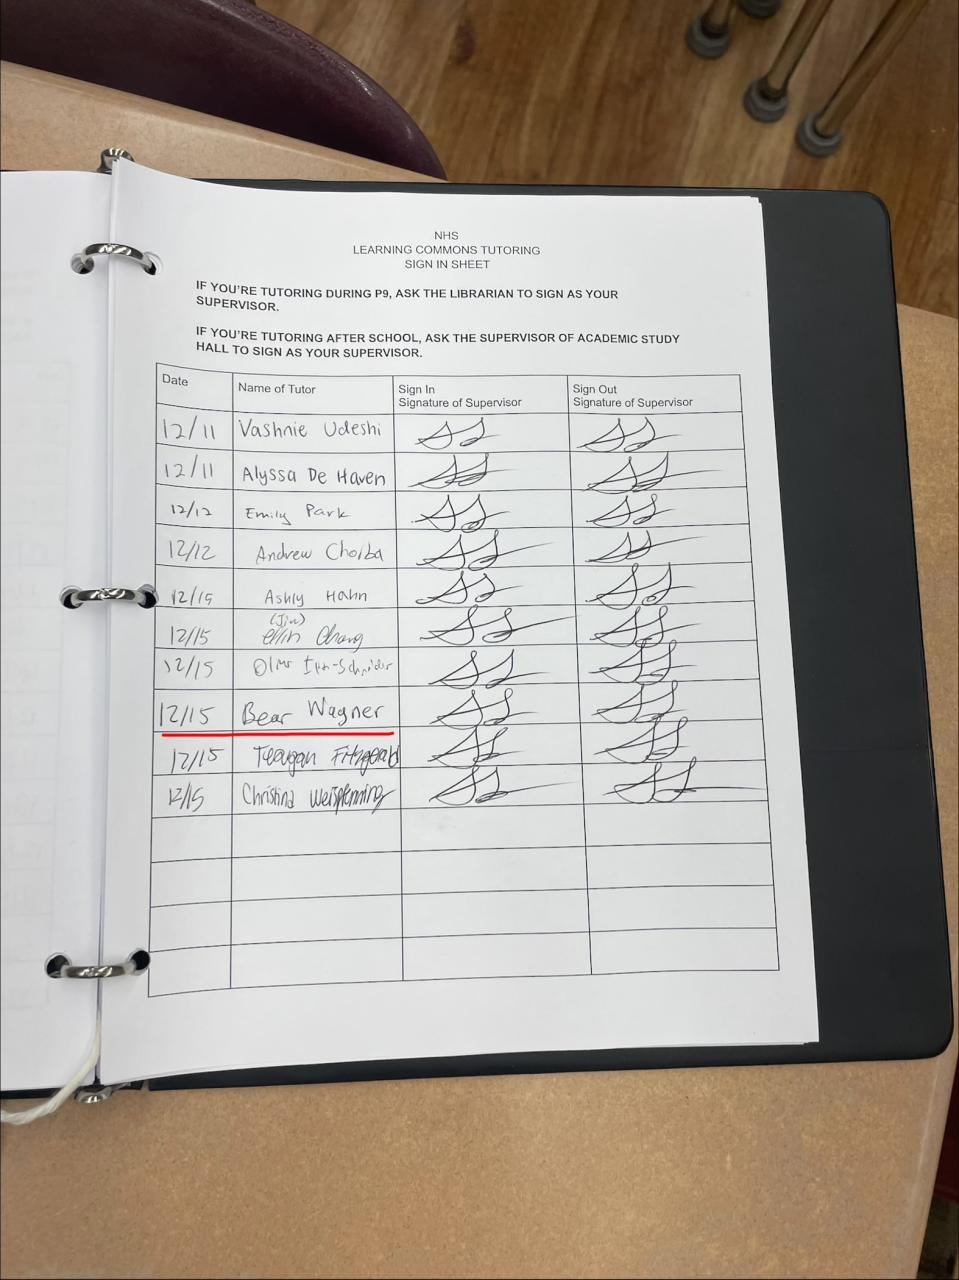 NHS
LEARNING COMMONS TUTORING
SIGN IN SHEET
IF YOU'RE TUTORING DURING P9, ASK THE LIBRARIAN TO SIGN AS YOUR
SUPERVISOR.
IF YOU'RE TUTORING AFTER SCHOOL, ASK THE SUPERVISOR OF ACADEMIC STUDY
HALL TO SIGN AS YOUR SUPERVISOR.
Date Name of Tutor Sign In Sign Out
Signature of Supervisor Signature of Supervisor
12/11 Vashnie Udeshi
12/11 Alyssa De Haven
12/12 Emily Park
12/12 Andrew Chorba
12/15 Ashly Hahn
(Jin)
12/15 Chang
12/15
12/15 Bear Wagner
12/15 Teagan Fitzgerald
12/15 Christina